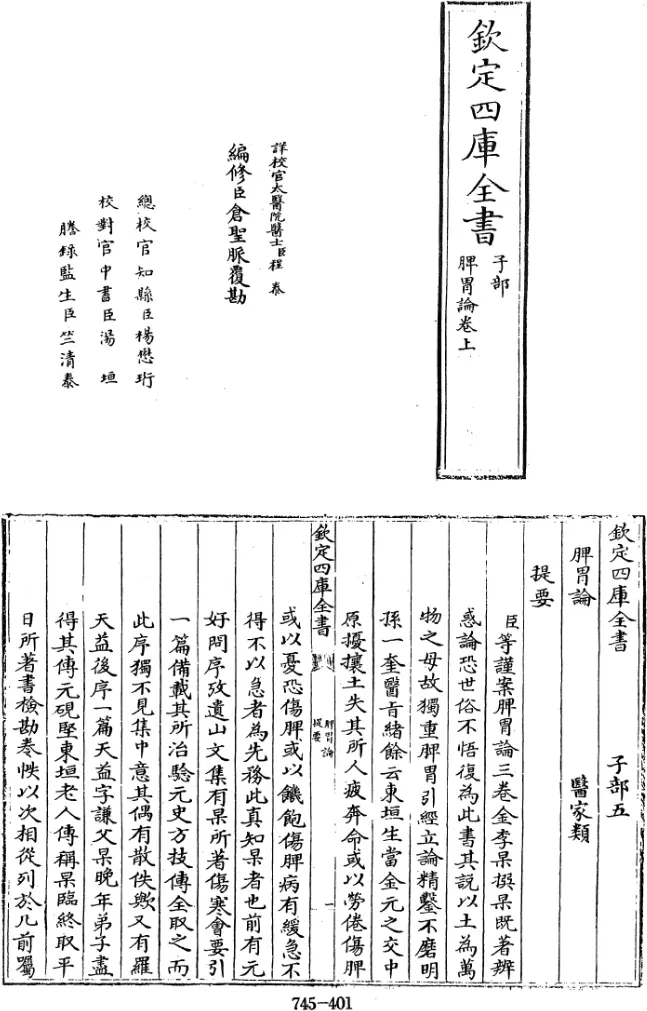 欽定四庫全書
子部
脾胃論卷上
詳校官太醫院醫士臣程泰
編修臣倉聖脈覆勘
總校官知縣臣楊懋珩
校對官中書臣湯垣
謄錄監生臣竺清泰
欽定四庫全書
子部五
脾胃論
醫家類
提要
臣等謹案脾胃論三卷金李杲撰杲既著辨
惑論恐世俗不悟復為此書其說以土為萬
物之母故獨重脾胃引經立論精鑿不磨明
孫一奎醫旨緒餘云東垣生當金元之交中
原擾攘土失其所人疲奔命或以勞倦傷脾
欽定四庫全書
脾胃論
提要
一
或以憂恐傷脾或以饑飽傷脾病有緩急不
得不以急者為先務此真知杲者也前有元
好問序攷遺山文集有杲所著傷寒會要引
一篇備載其所治驗元史方技傳全取之而
此序獨不見集中意其偶有散佚歟又有羅
天益後序一篇天益字謙父杲晚年弟子盡
得其傳元硯堅東垣老人傳稱杲臨終取平
日所著書檢勘卷帙以次相從列於几前囑
745-401